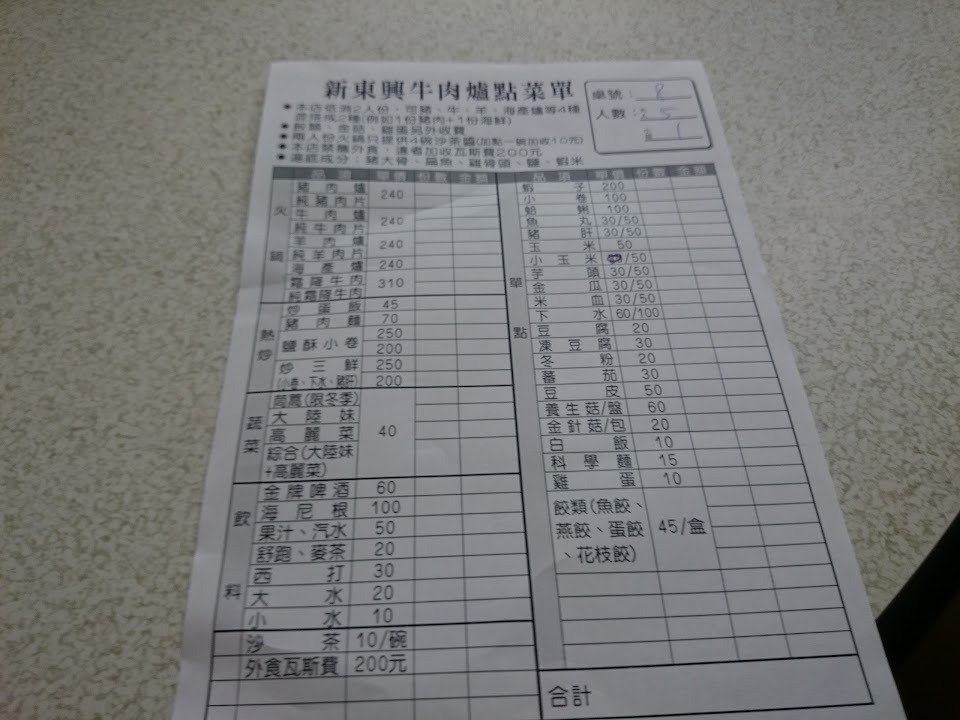 新東興牛肉爐點菜單
桌號: 8
人數: 大 5
小 1
本店低消2人份,可豬、牛、羊、海產爐等4種
混搭成2種(例如1份豬肉+1份海鮮)
餃類、金菇、雞蛋另外收費
兩人份火鍋只提供4碗沙茶醬(加點一碗加收10元)
本店禁帶外食,違者加收瓦斯費200元
湯底成分:豬大骨、扁魚、雞骨頭、鹽、蝦米
品項 單價 份數 金額
火鍋
豬肉爐 240
純豬肉片
牛肉爐 240
純牛肉片
羊肉爐 240
純羊肉片
海產爐 240
霜降牛肉 310
純霜降牛肉
熱炒
炒蛋飯 45
豬肉麵 70
鹽酥小卷 250
200
炒三鮮 250
(小卷、下水、豬肝) 200
蔬菜
茼蒿(限冬季) 40
大陸妹
高麗菜
綜合(大陸妹
+高麗菜)
飲料
金牌啤酒 60
海尼根 100
果汁、汽水 50
舒跑、麥茶 20
西打 30
大水 20
小水 10
沙茶 10/碗
外食瓦斯費 200元
品項 單價 份數 金額
單點
蝦子 200
小卷 100
蛤蜊 100
魚丸 30/50
豬肝 30/50
玉米 50
小玉米 /50
芋頭 30/50
金瓜 30/50
米血 30/50
下水 60/100
豆腐 20
凍豆腐 30
冬粉 20
蕃茄 30
豆皮 50
養生菇/盤 60
金針菇/包 20
白飯 10
科學麵 15
雞蛋 10
餃類(魚餃、
燕餃、蛋餃 45/盒
、花枝餃)
合計